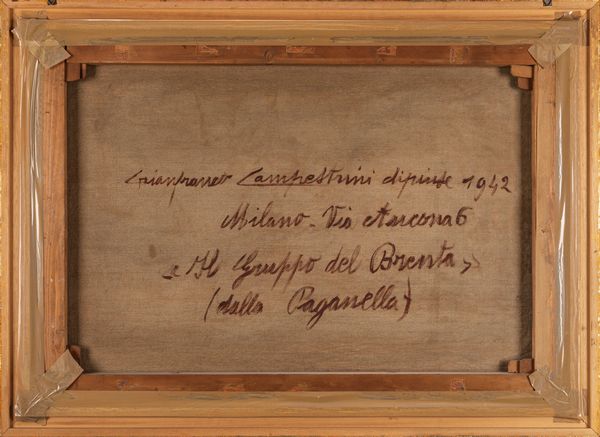 Gianfranco Campestrini dipinse 1942
Milano - Via Ancona 6
« Il Gruppo del Brenta »
(dalla Paganella)